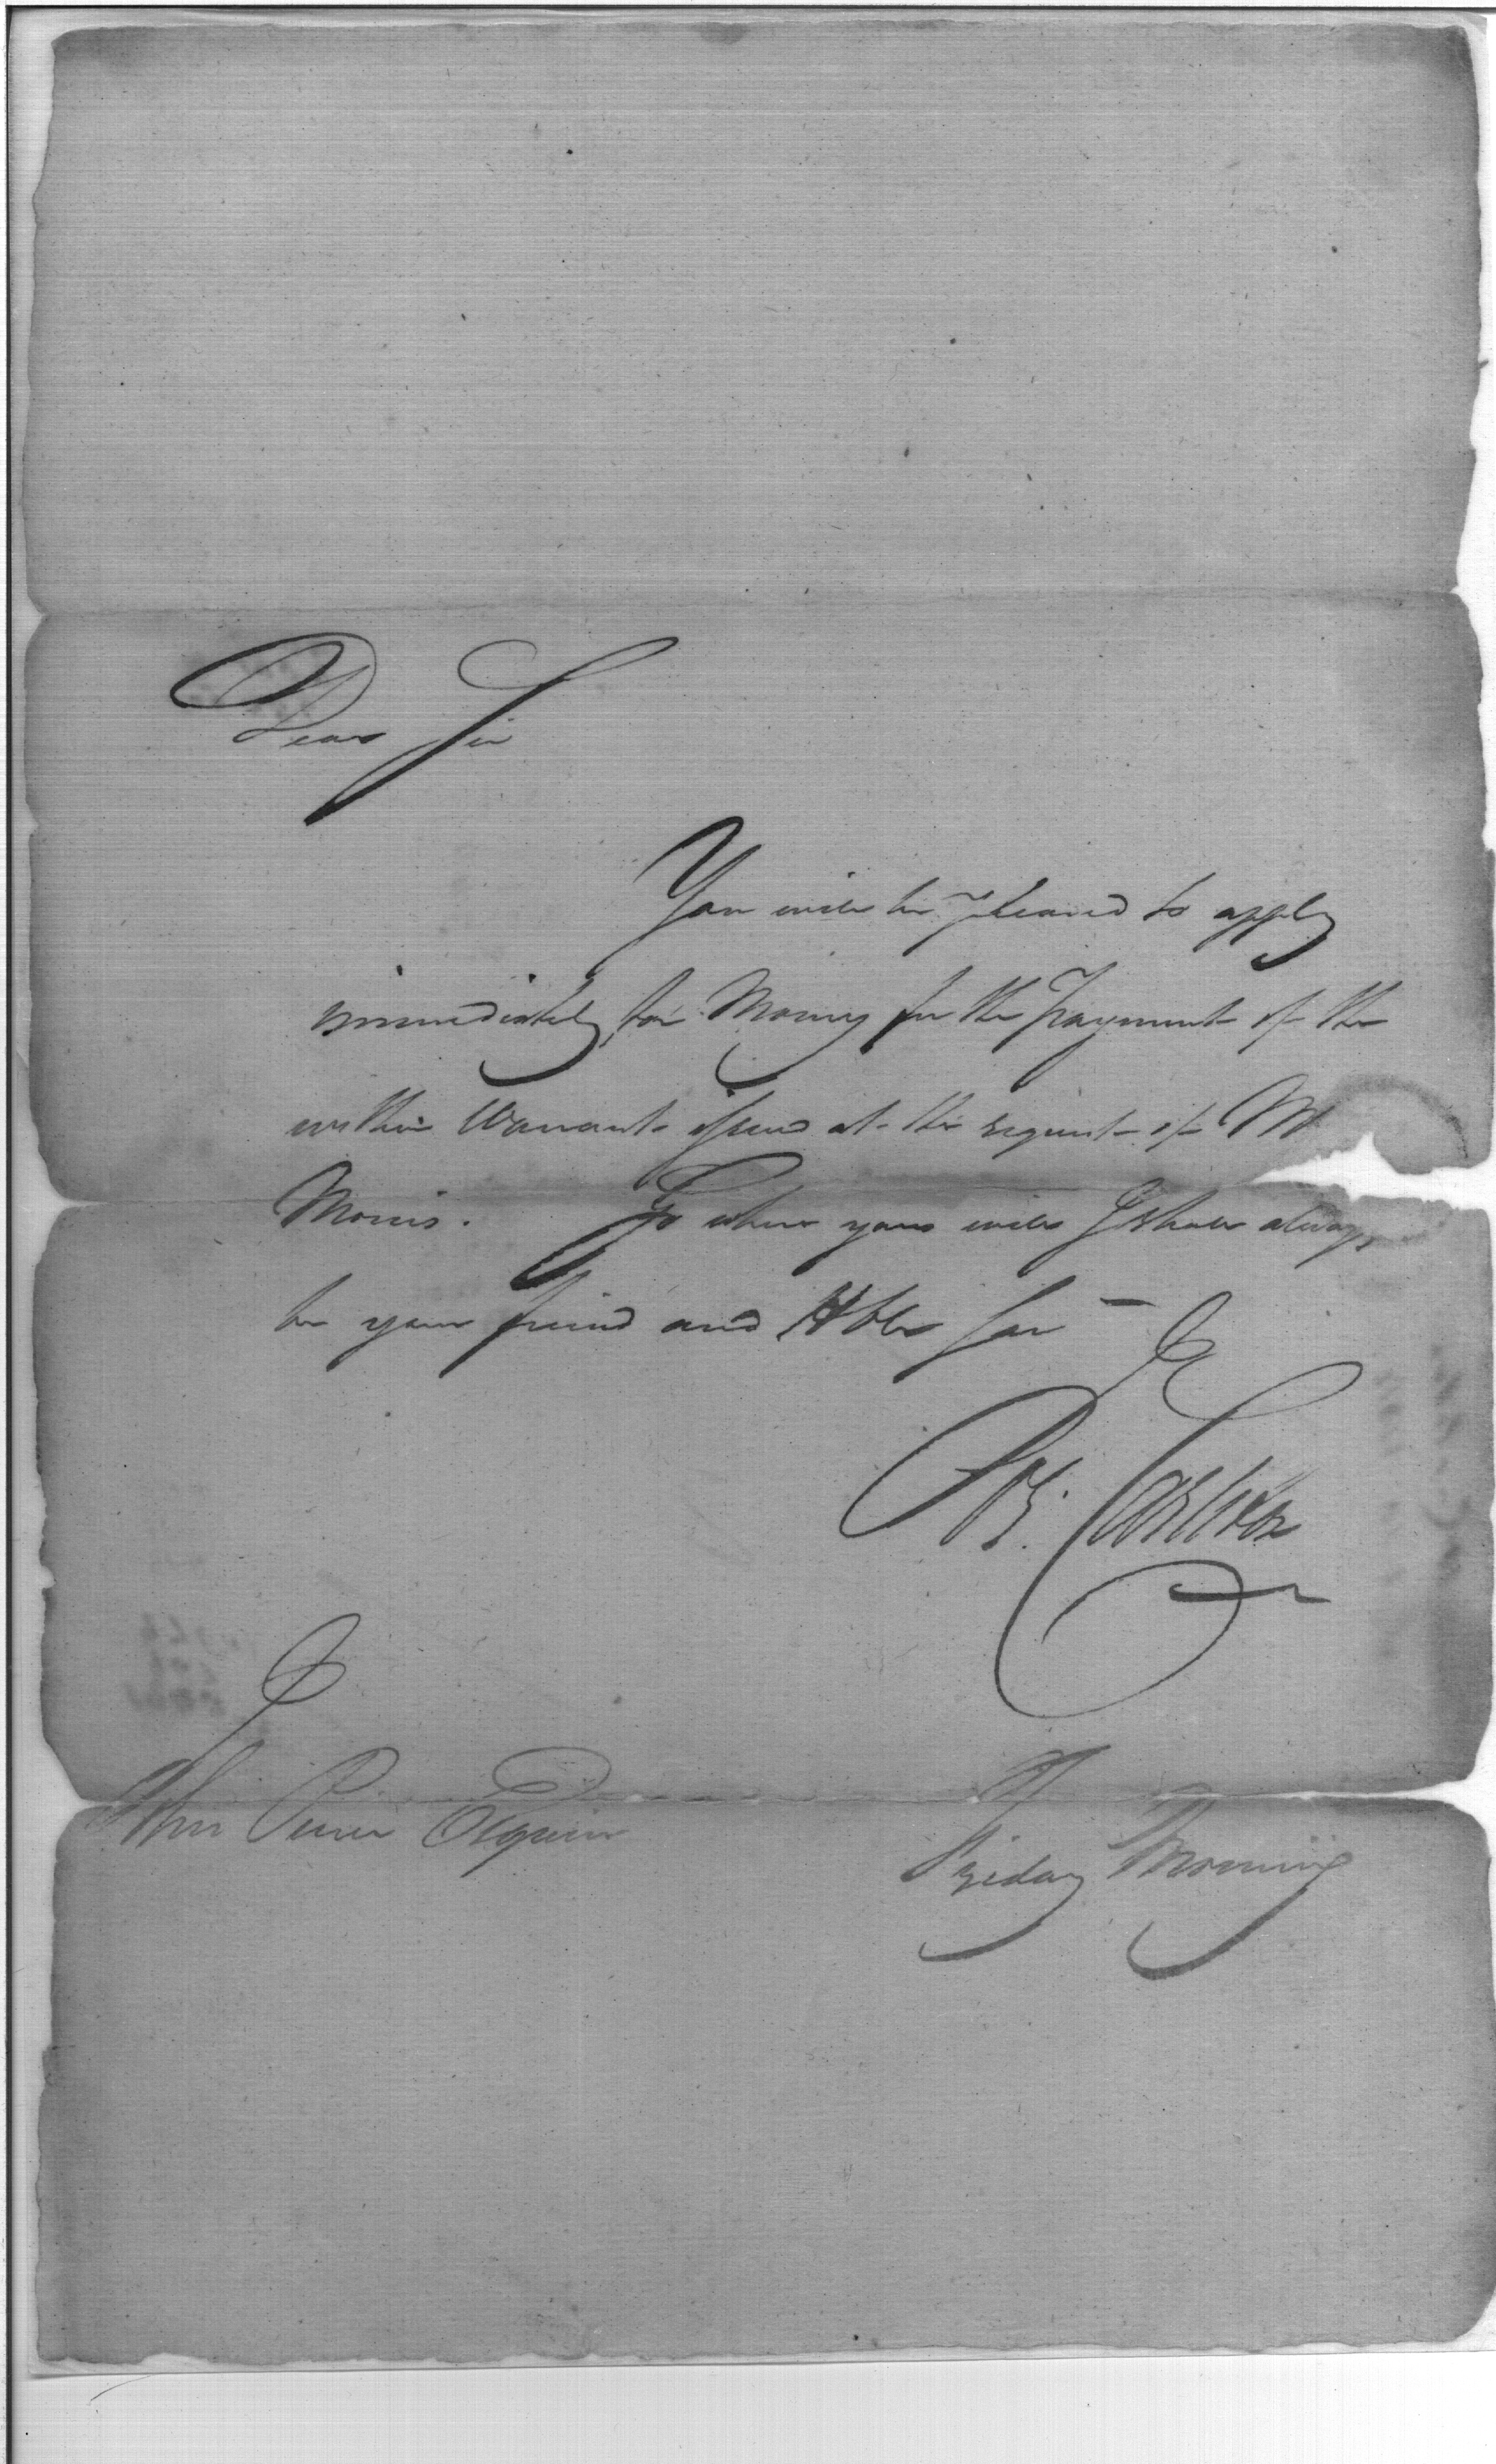 Dear Sir
You will be pleased to apply
immediately for Money for the Payment of the
within Warrant issued at the request of M
Morris. To whom yours will I shall always
be your friend and Hble Ser —
John Pierce Esquire
Friday Morning